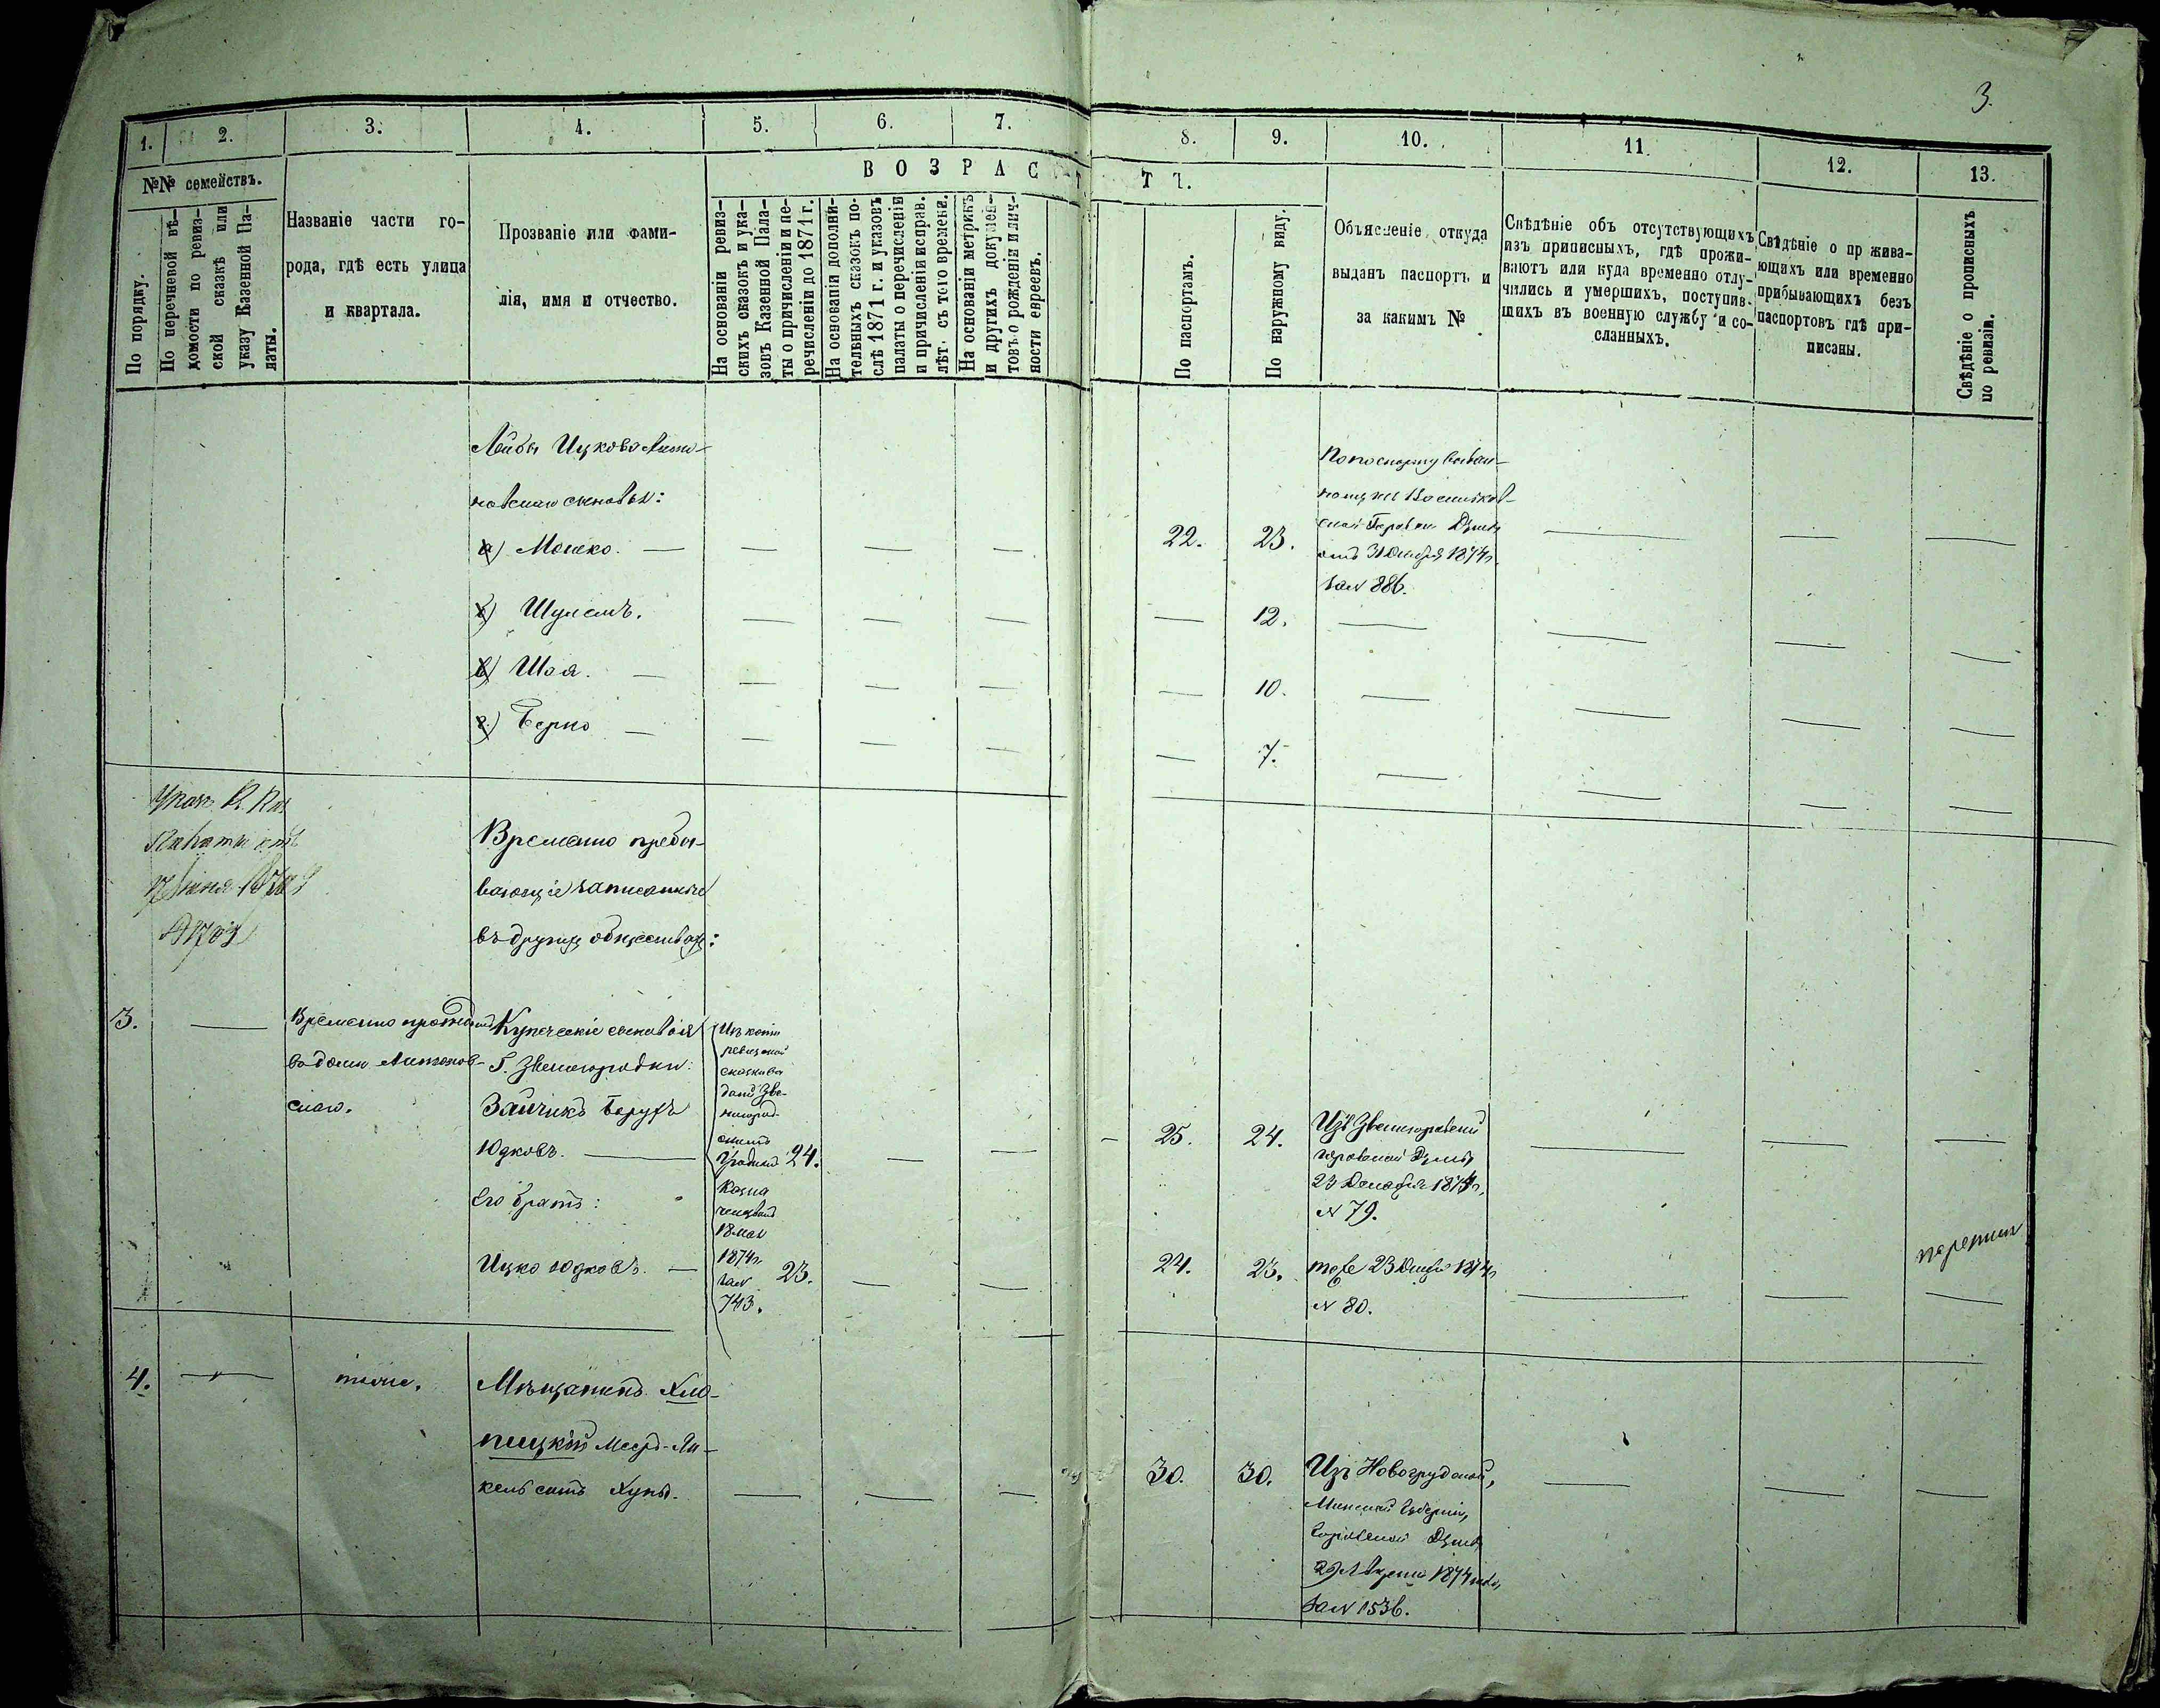 3.
1. 2. 3. 4. 5. 6. 7. 8. 9. 10. 11. 12. 13.
№№ семействъ.
По порядку.
По перечневой вѣ-
домости по ревиз-
ской сказкѣ или
указу Казенной Па-
латы.
Названіе части го-
рода, гдѣ есть улица
и квартала.
Прозваніе или фами-
лія, имя и отчество.
ВОЗРАСТЪ.
На основаніи ревиз-
скихъ сказокъ и ука-
зовъ Казенной Пала-
ты о причисленіи и пе-
речисленіи до 1871 г.
На основаніи дополни-
тельныхъ сказокъ по-
слѣ 1871 г. и указовъ
палаты о перечисленіи
и причисленіи исправ.
лѣт. съ того времени.
На основаніи метрикъ
и другихъ докумен-
товъ о рожденіи и лич-
ности евреевъ.
По паспортамъ.
По наружному виду.
Объясненіе откуда
выданъ паспортъ и
за какимъ №
Свѣдѣніе объ отсутствующихъ
изъ приписныхъ, гдѣ прожи-
ваютъ или куда временно отлу-
чились и умершихъ, поступив-
шихъ въ военную службу и со-
сланныхъ.
Свѣдѣніе о пр жива-
ющихъ или временно
прибывающихъ безъ
паспортовъ гдѣ при-
писаны.
Свѣдѣніе о прописныхъ
по ревизіи.
Лейбы Ицкова Липо-
новскаго сыновья:
а) Мошко. — — — — 22. 23.
По паспорту
ской Городской Думы
отъ 31 Декабря 1874 г.
за № 886.
б) Шулемъ. — — — — 12. —
в) Шоя. — — — — — 10. —
г) Берко — — — — — 7. —
Указ К. Каз.
Палаты отъ
Временно пребы-
вающіе записанные
въ другихъ обществахъ:
3. — Временно
въ домѣ
скаго.
Купеческіе сыновья
Г. Звенигородки:
Зайчикъ Борухъ
Юдковъ. —
Изъ копіи
ревизской
сказки
Звени-
город-
скимъ
Казна
чействомъ
18 мая
1874 г.
за №
743.
24. — — 25. 24.
Изъ Звенигородской
городской Думы
23 Декабря 1874 г.
№ 79.
Его братъ:
Ицко Юдковъ. — 23. — — 24. 23.
тоже 23 Декабря 1874 г.
№ 80.
4. — тоже. Мѣщанинъ Хло-
пицкій Меер-Ян-
кель сынъ Хуны. — — — 30. 30.
Изъ Новогрудской,
Минской Губерніи,
Городской Думы
1874 года,
за № 1536.